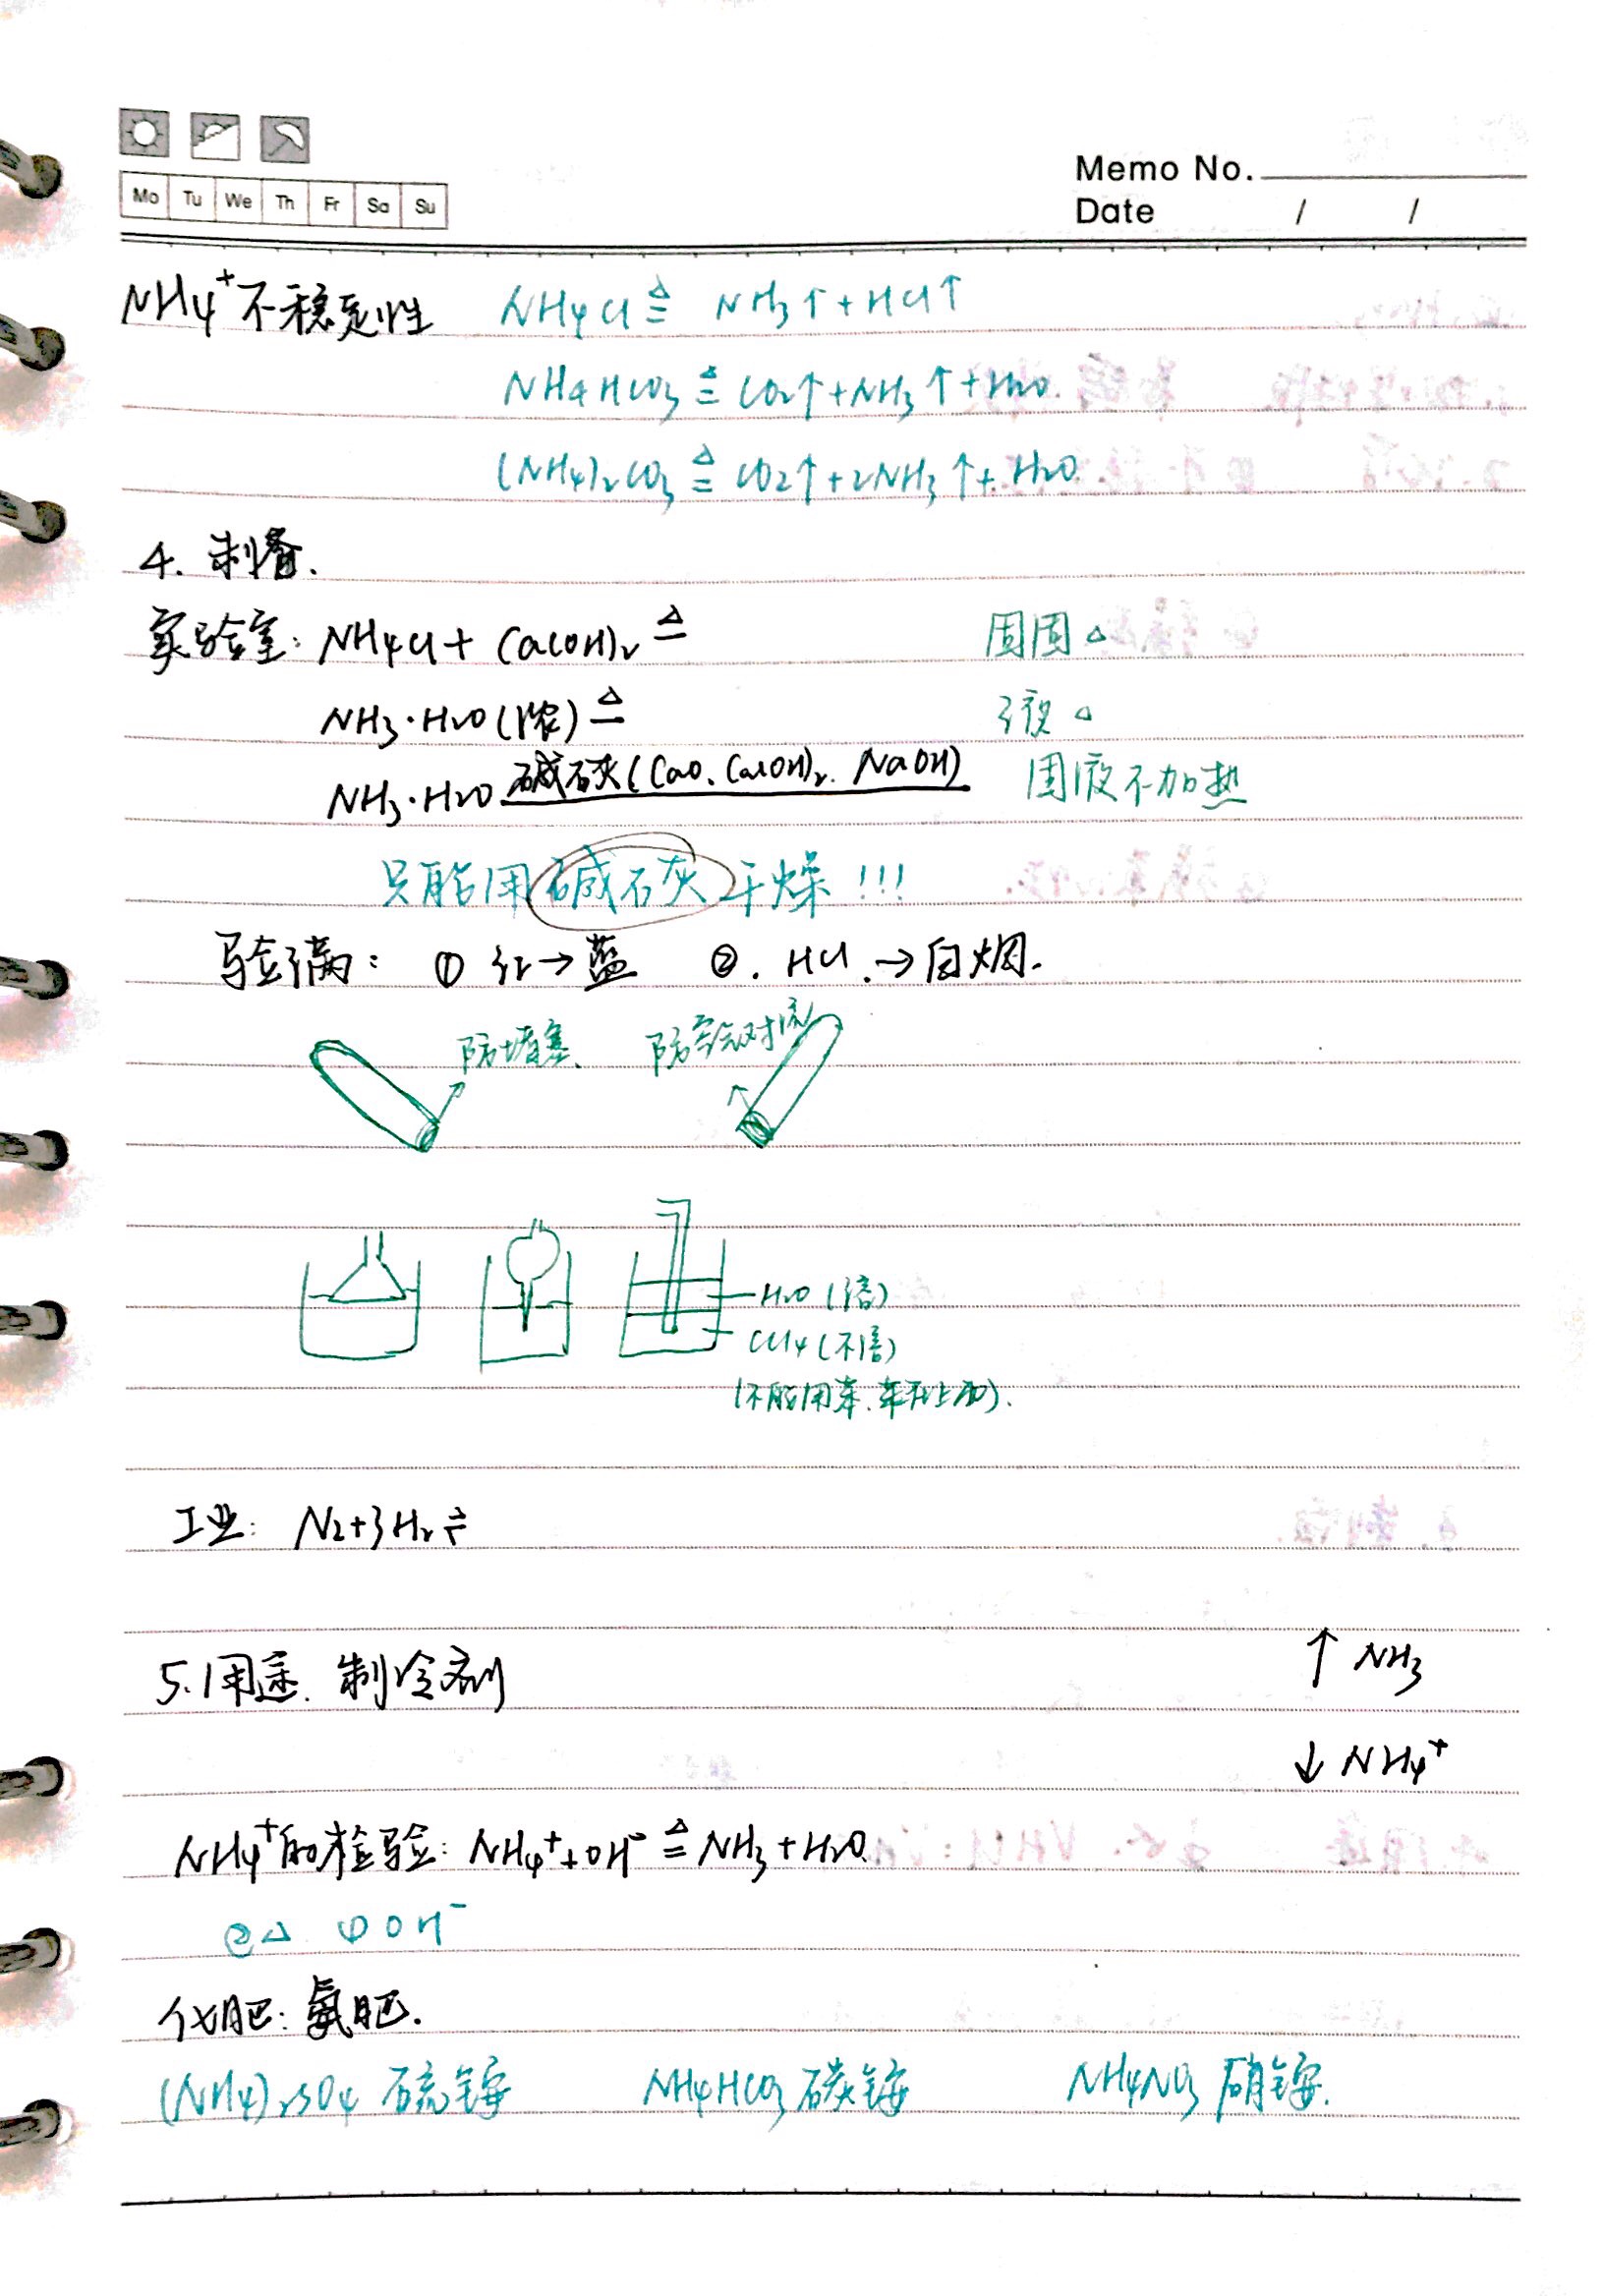 Mo Tu We Th Fr Sa Su
Memo No.
Date / /
NH₄⁺不稳定性 NH₄Cl ≜ NH₃↑+HCl↑
NH₄HCO₃ ≜ CO₂↑+NH₃↑+H₂O.
(NH₄)₂CO₃ ≜ CO₂↑+2NH₃↑+H₂O.
4. 制备.
实验室: NH₄Cl + Ca(OH)₂ ≜ 固固△
NH₃·H₂O(浓) ≜ 液△
NH₃·H₂O 碱石灰(CaO、Ca(OH)₂、NaOH) 固液不加热
只能用碱石灰干燥!!!
验满: ① 红→蓝 ②. HCl.→白烟.
防堵塞. 防空气对流
H₂O (溶)
CCl₄ (不溶)
(不能用苯.苯在上面).
工业: N₂+3H₂⇌
5.用途. 制冷剂 ↑ NH₃
↓ NH₄⁺
NH₄⁺的检验: NH₄⁺+OH⁻ ≜ NH₃+H₂O.
②△ ①OH⁻
化肥: 氮肥.
(NH₄)₂SO₄ 硫铵 NH₄HCO₃ 碳铵 NH₄NO₃ 硝铵.